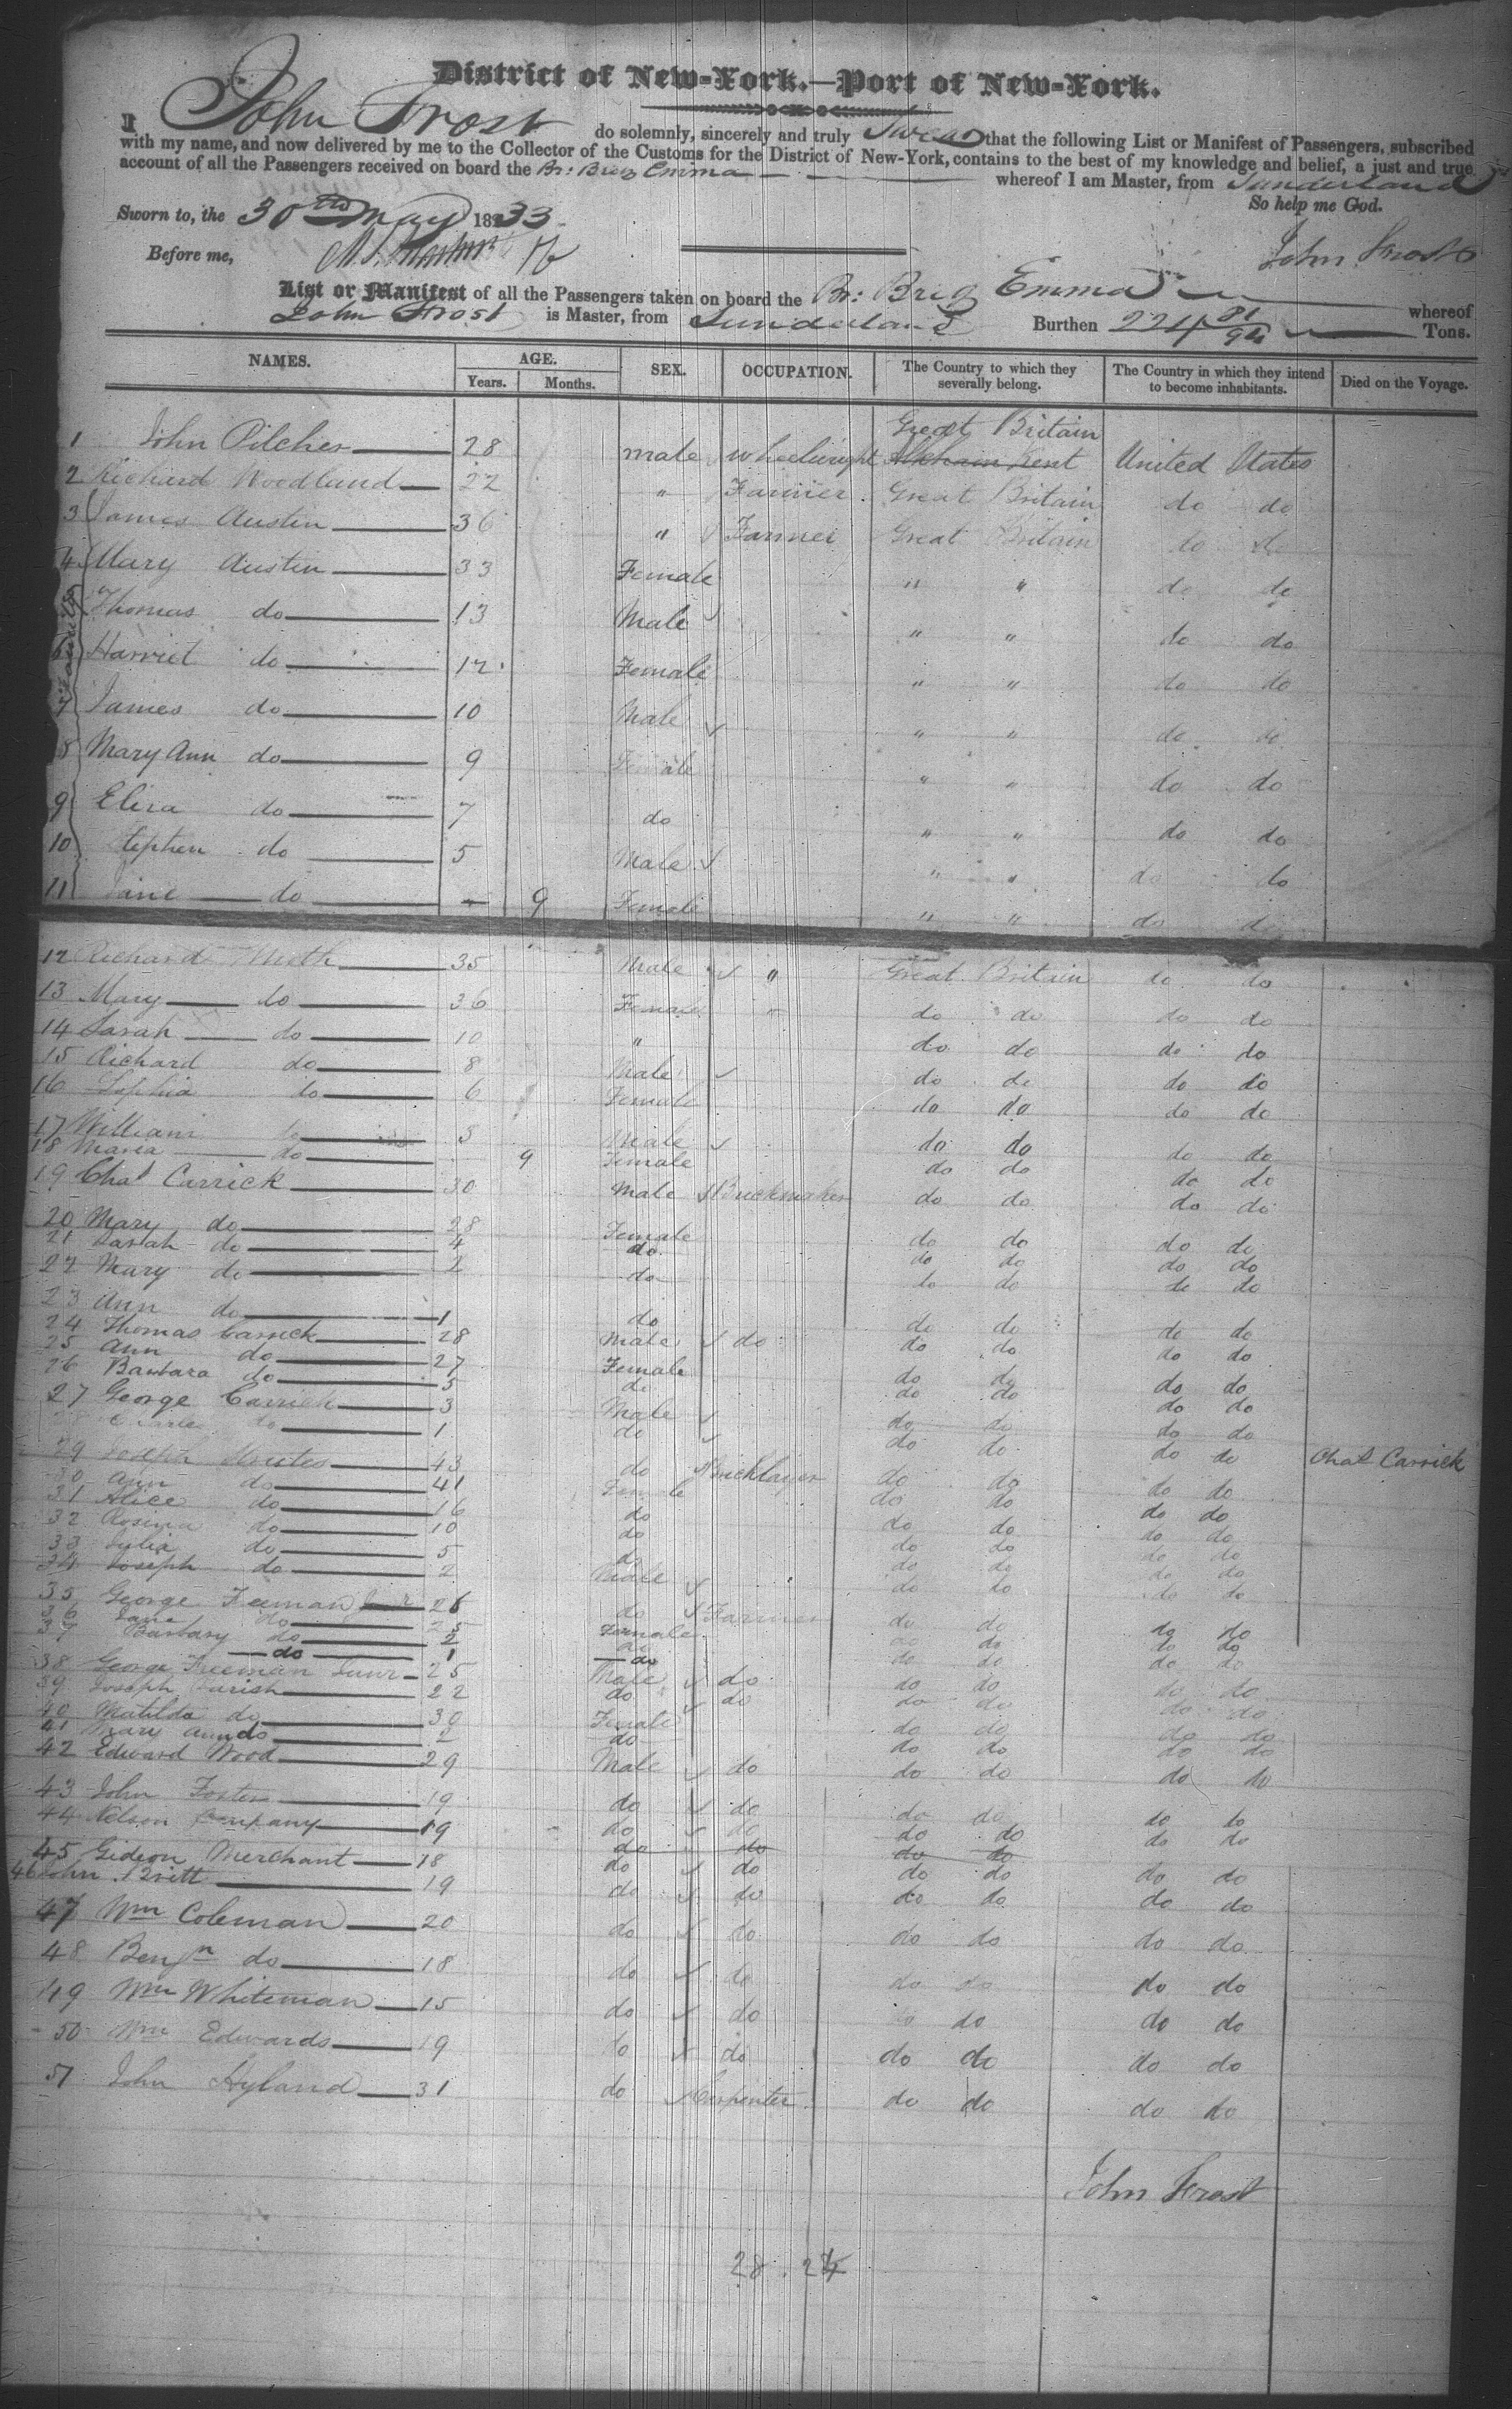 District of New-York.—Port of New-York.
I John Frost do solemnly, sincerely and truly Swear that the following List or Manifest of Passengers, subscribed
with my name, and now delivered by me to the Collector of the Customs for the District of New-York, contains to the best of my knowledge and belief, a just and true
account of all the Passengers received on board the Br: Brig Emma whereof I am Master, from Sunderland
So help me God.
Sworn to, the 30th May 1833
John Frost
Before me,
List or Manifest of all the Passengers taken on board the Br: Brig Emma whereof
John Frost is Master, from Sunderland Burthen 224 81/94 Tons.
NAMES. AGE. SEX. OCCUPATION. The Country to which they severally belong. The Country in which they intend to become inhabitants. Died on the Voyage.
Years. Months.
Great Britain
1 John Pilcher 28 male Wheelwright Kent United States
2 Richard Woodland 22 " Farmer Great Britain do do
3 James Austin 36 " Farmer Great Britain do do
4 Mary Austin 33 Female " " do do
5 Thomas do 13 Male " " do do
6 Harriet do 12 Female " " do do
7 James do 10 Male " " do do
8 Mary Ann do 9 Female " " do do
9 Eliza do 7 do " " do do
10 Stephen do 5 Male " " do do
11 Jane do 9 Female " " do do
12 Richard 35 Male " Great Britain do do
13 Mary do 36 Female " do do do do
14 Sarah do 10 " do do do do
15 Richard do 8 Male do do do do
16 Sophia do 6 Female do do do do
17 William do 3 Male do do do do
18 Maria do 9 Female do do do do
19 Chas Carrick 30 Male Brickmaker do do do do
20 Mary do 28 Female do do do do
21 Sarah do 4 do do do do do
22 Mary do 2 do do do do do
23 Ann do 1 do do do do do
24 Thomas Carrick 28 Male do do do do do
25 Ann do 27 Female do do do do
26 Barbara do 5 do do do do do
27 George Carrick 3 Male do do do do
28 Charles do 1 do do do do do Chas Carrick
29 Joseph 43 do Bricklayer do do do do
30 Ann do 41 Female do do do do
31 Alice do 16 do do do do do
32 Rosina do 10 do do do do do
33 Julia do 5 do do do do do
34 Joseph do 2 Male do do do do
35 George Freeman 26 do Farmer do do do do
36 Jane do 25 Female do do do do
37 Barbary do 2 do do do do do
do 1 do
38 George Freeman Junr 25 Male do do do do do
39 Joseph Parish 22 do do do do do do
40 Matilda do 30 Female do do do do
41 Mary Ann do 2 do do do do do
42 Edward Wood 29 Male do do do do do
43 John Foster 19 do do do do do do
44 Nelson 19 do do do do do do
do do do do
45 Gideon Merchant 18 do do do do do do
46 John Britt 19 do do do do do do
47 Wm Coleman 20 do do do do do do
48 Benjn do 18 do do do do do do
49 Wm Whiteman 15 do do do do do
50 Wm Edwards 19 do do do do do do
51 John Hyland 31 do Carpenter do do do do
John Frost
28 . 24